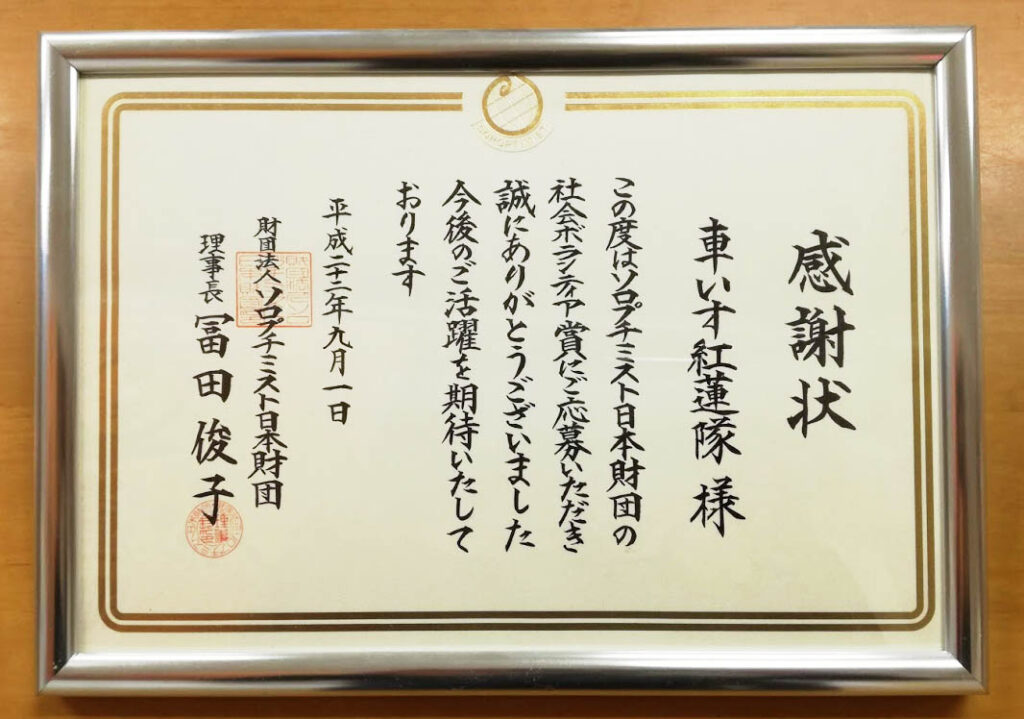 感謝状
車いす紅蓮隊 様
この度はソロプチミスト日本財団の
社会ボランティア賞にご応募いただき
誠にありがとうございました
今後のご活躍を期待いたして
おります
平成二十二年九月一日
財団法人ソロプチミスト日本財団
理事長 冨田俊子